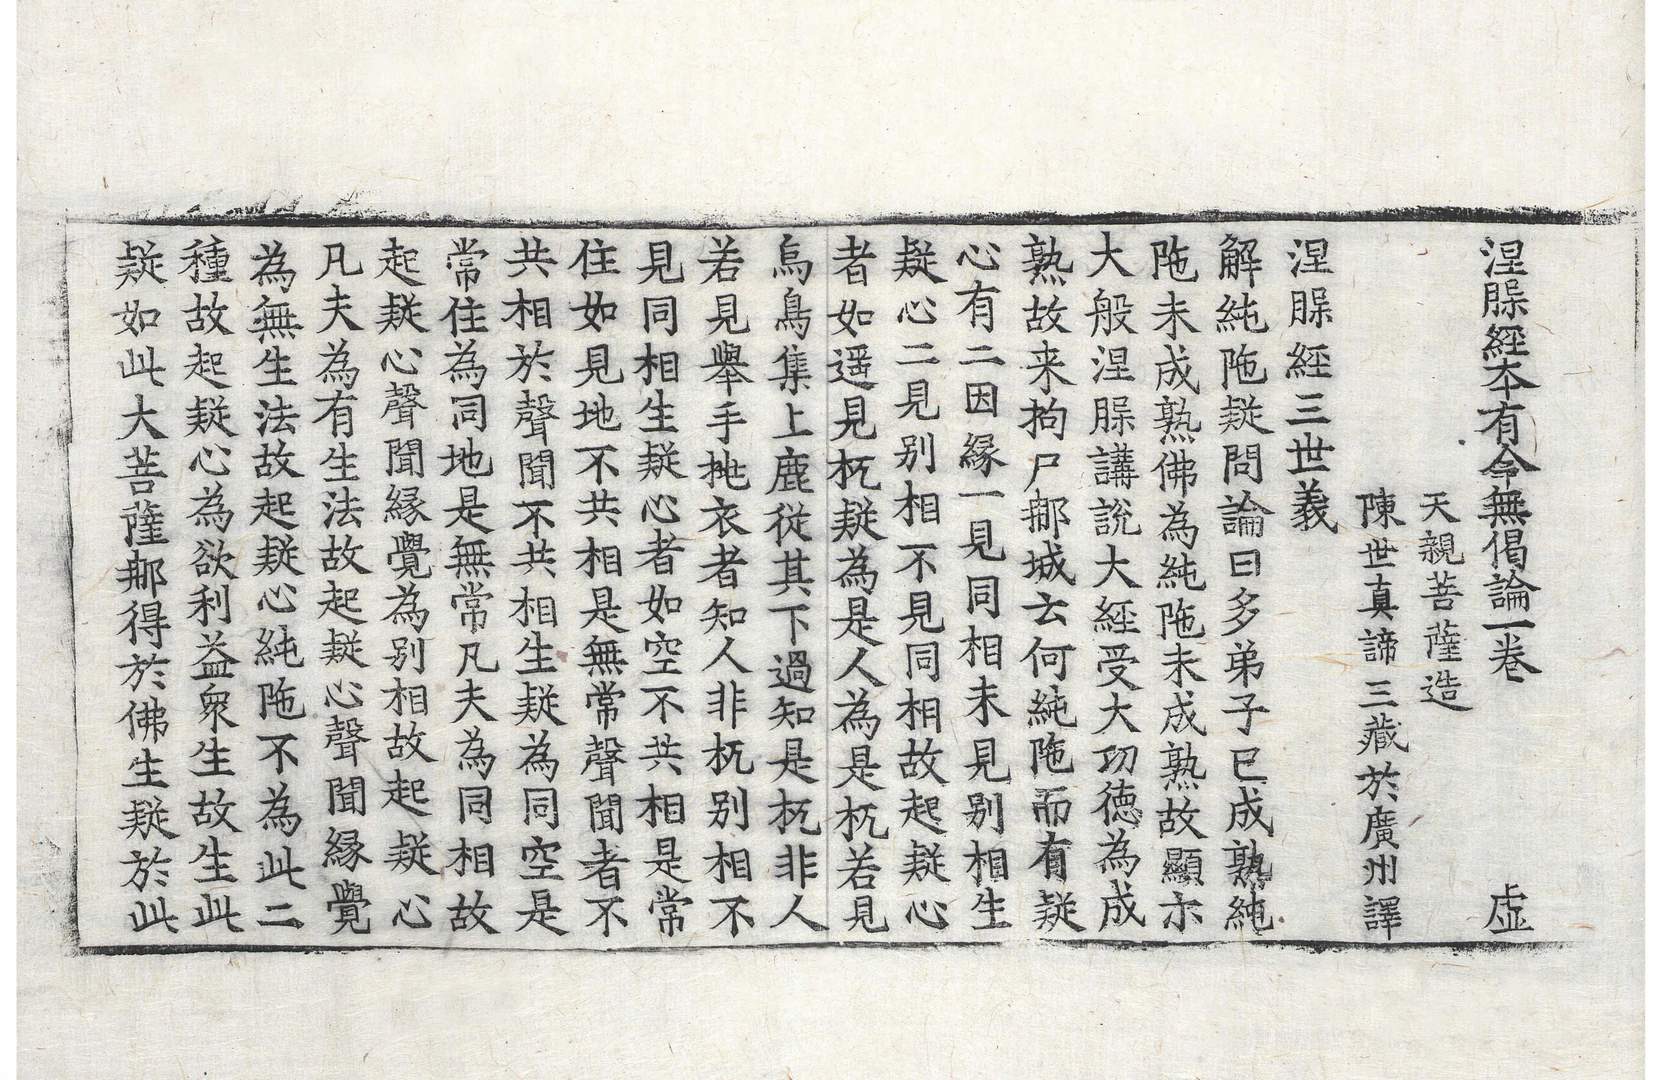 涅槃經本有今無偈論一卷 虛
天親菩薩造
陳世真諦三藏於廣州譯
涅槃經三世義
解純陁疑問論曰多弟子已成熟純
陁未成熟佛為純陁未成熟故顯尒
大般涅槃講說大經受大功德為成
熟故来拘尸那城去何純陁而有疑
心有二因緣一見同相未見别相生
疑心二見别相不見同相故起疑心
者如遥見杌疑為是人為是杌若見
烏鳥集上鹿從其下過知是杌非人
若見舉手挽衣者知人非杌别相不
見同相生疑心者如空不共相是常
住如見地不共相是無常聲聞者不
共相於聲聞不共相生疑為同空是
常住為同地是無常凡夫為同相故
起疑心聲聞緣覺為别相故起疑心
凡夫為有生法故起疑心聲聞緣覺
為無生法故起疑心純陁不為此二
種故起疑心為欲利益衆生故生此
疑如此大菩薩那得於佛生疑於此